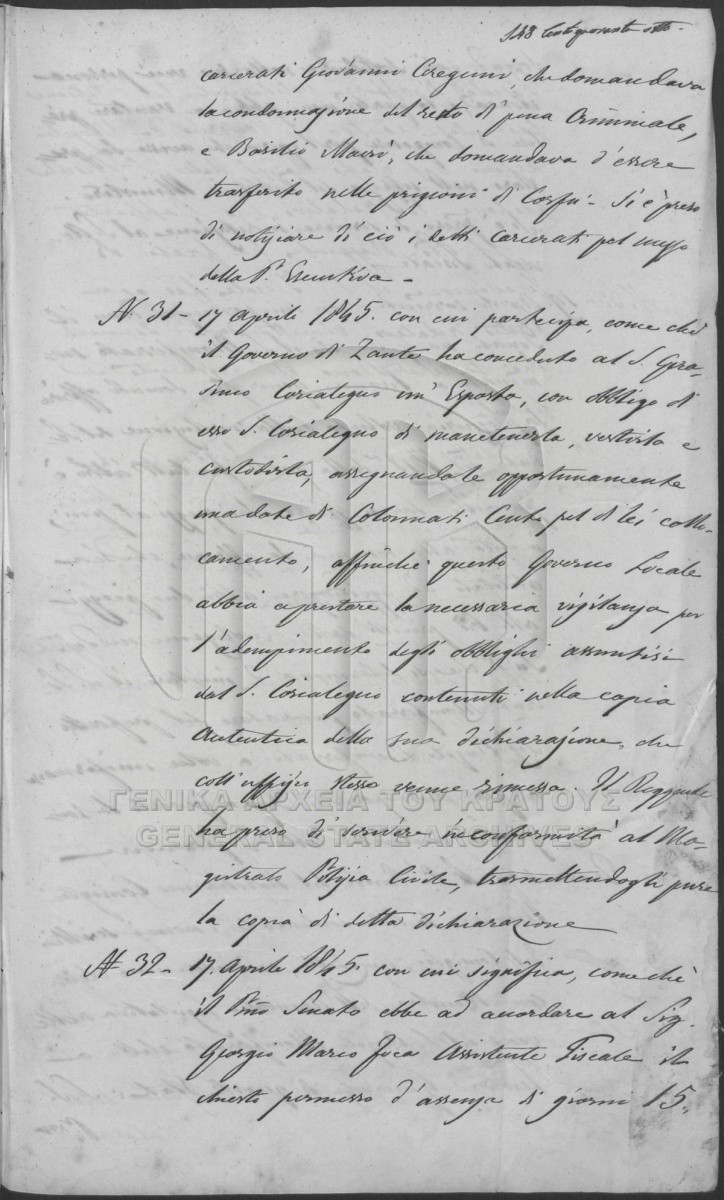 148 Centoquarantotto.
carcerati Giovanni Ceregini, che domandava
la condonnazione del resto di pena Criminale,
e Basilio Macrì, che domandava d'essere
trasferito nelle prigioni di Corfù - Si è preso
di notiziare di ciò i detti carcerati pel mezzo
della P. Esecutiva -
N. 31 - 17 Aprile 1845. con cui partecipa, come chè
il Governo di Zante ha conceduto al S. Gera-
simo Cosialegno un' Esposta, con obbligo di
esso S. Cosialegno di mantenerla, vestirla e
custodirla, assegnandole opportunamente
una dote di Colonnati Cento pel di lei collo-
camento, affinchè questo Governo Locale
abbia a prestare la necessaria vigilanza per
l'adempimento degli obblighi assuntisi
dal S. Cosialegno contenuti nella copia
Autentica della sua dichiarazione, che
coll'uffizio stesso venne rimessa. Il Reggente
ha preso di scrivere in conformità al Ma-
gistrato Polizia Civile, trasmettendogli pure
la copia di detta dichiarazione
N 32 - 17 Aprile 1845. con cui significa, come chè
il Pmo Senato ebbe ad accordare al Sig.
Georgio Marco Foca Assistente Fiscale il
chiesto permesso d'assenza di giorni 15,
ΓΕΝΙΚΑ ΑΡΧΕΙΑ ΤΟΥ ΚΡΑΤΟΥΣ
GENERAL STATE ARCHIVES